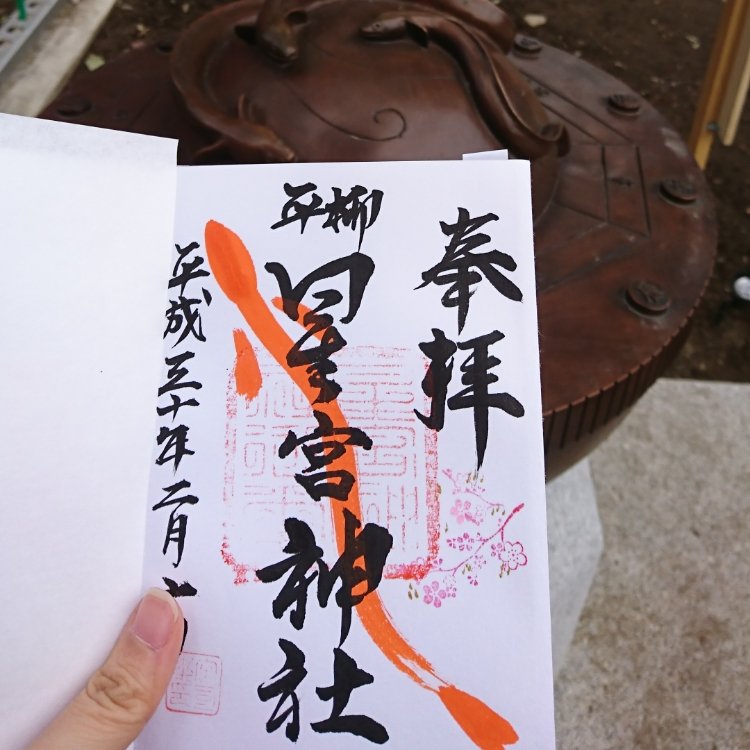 奉拝
平柳
星宮神社
平成三十年二月